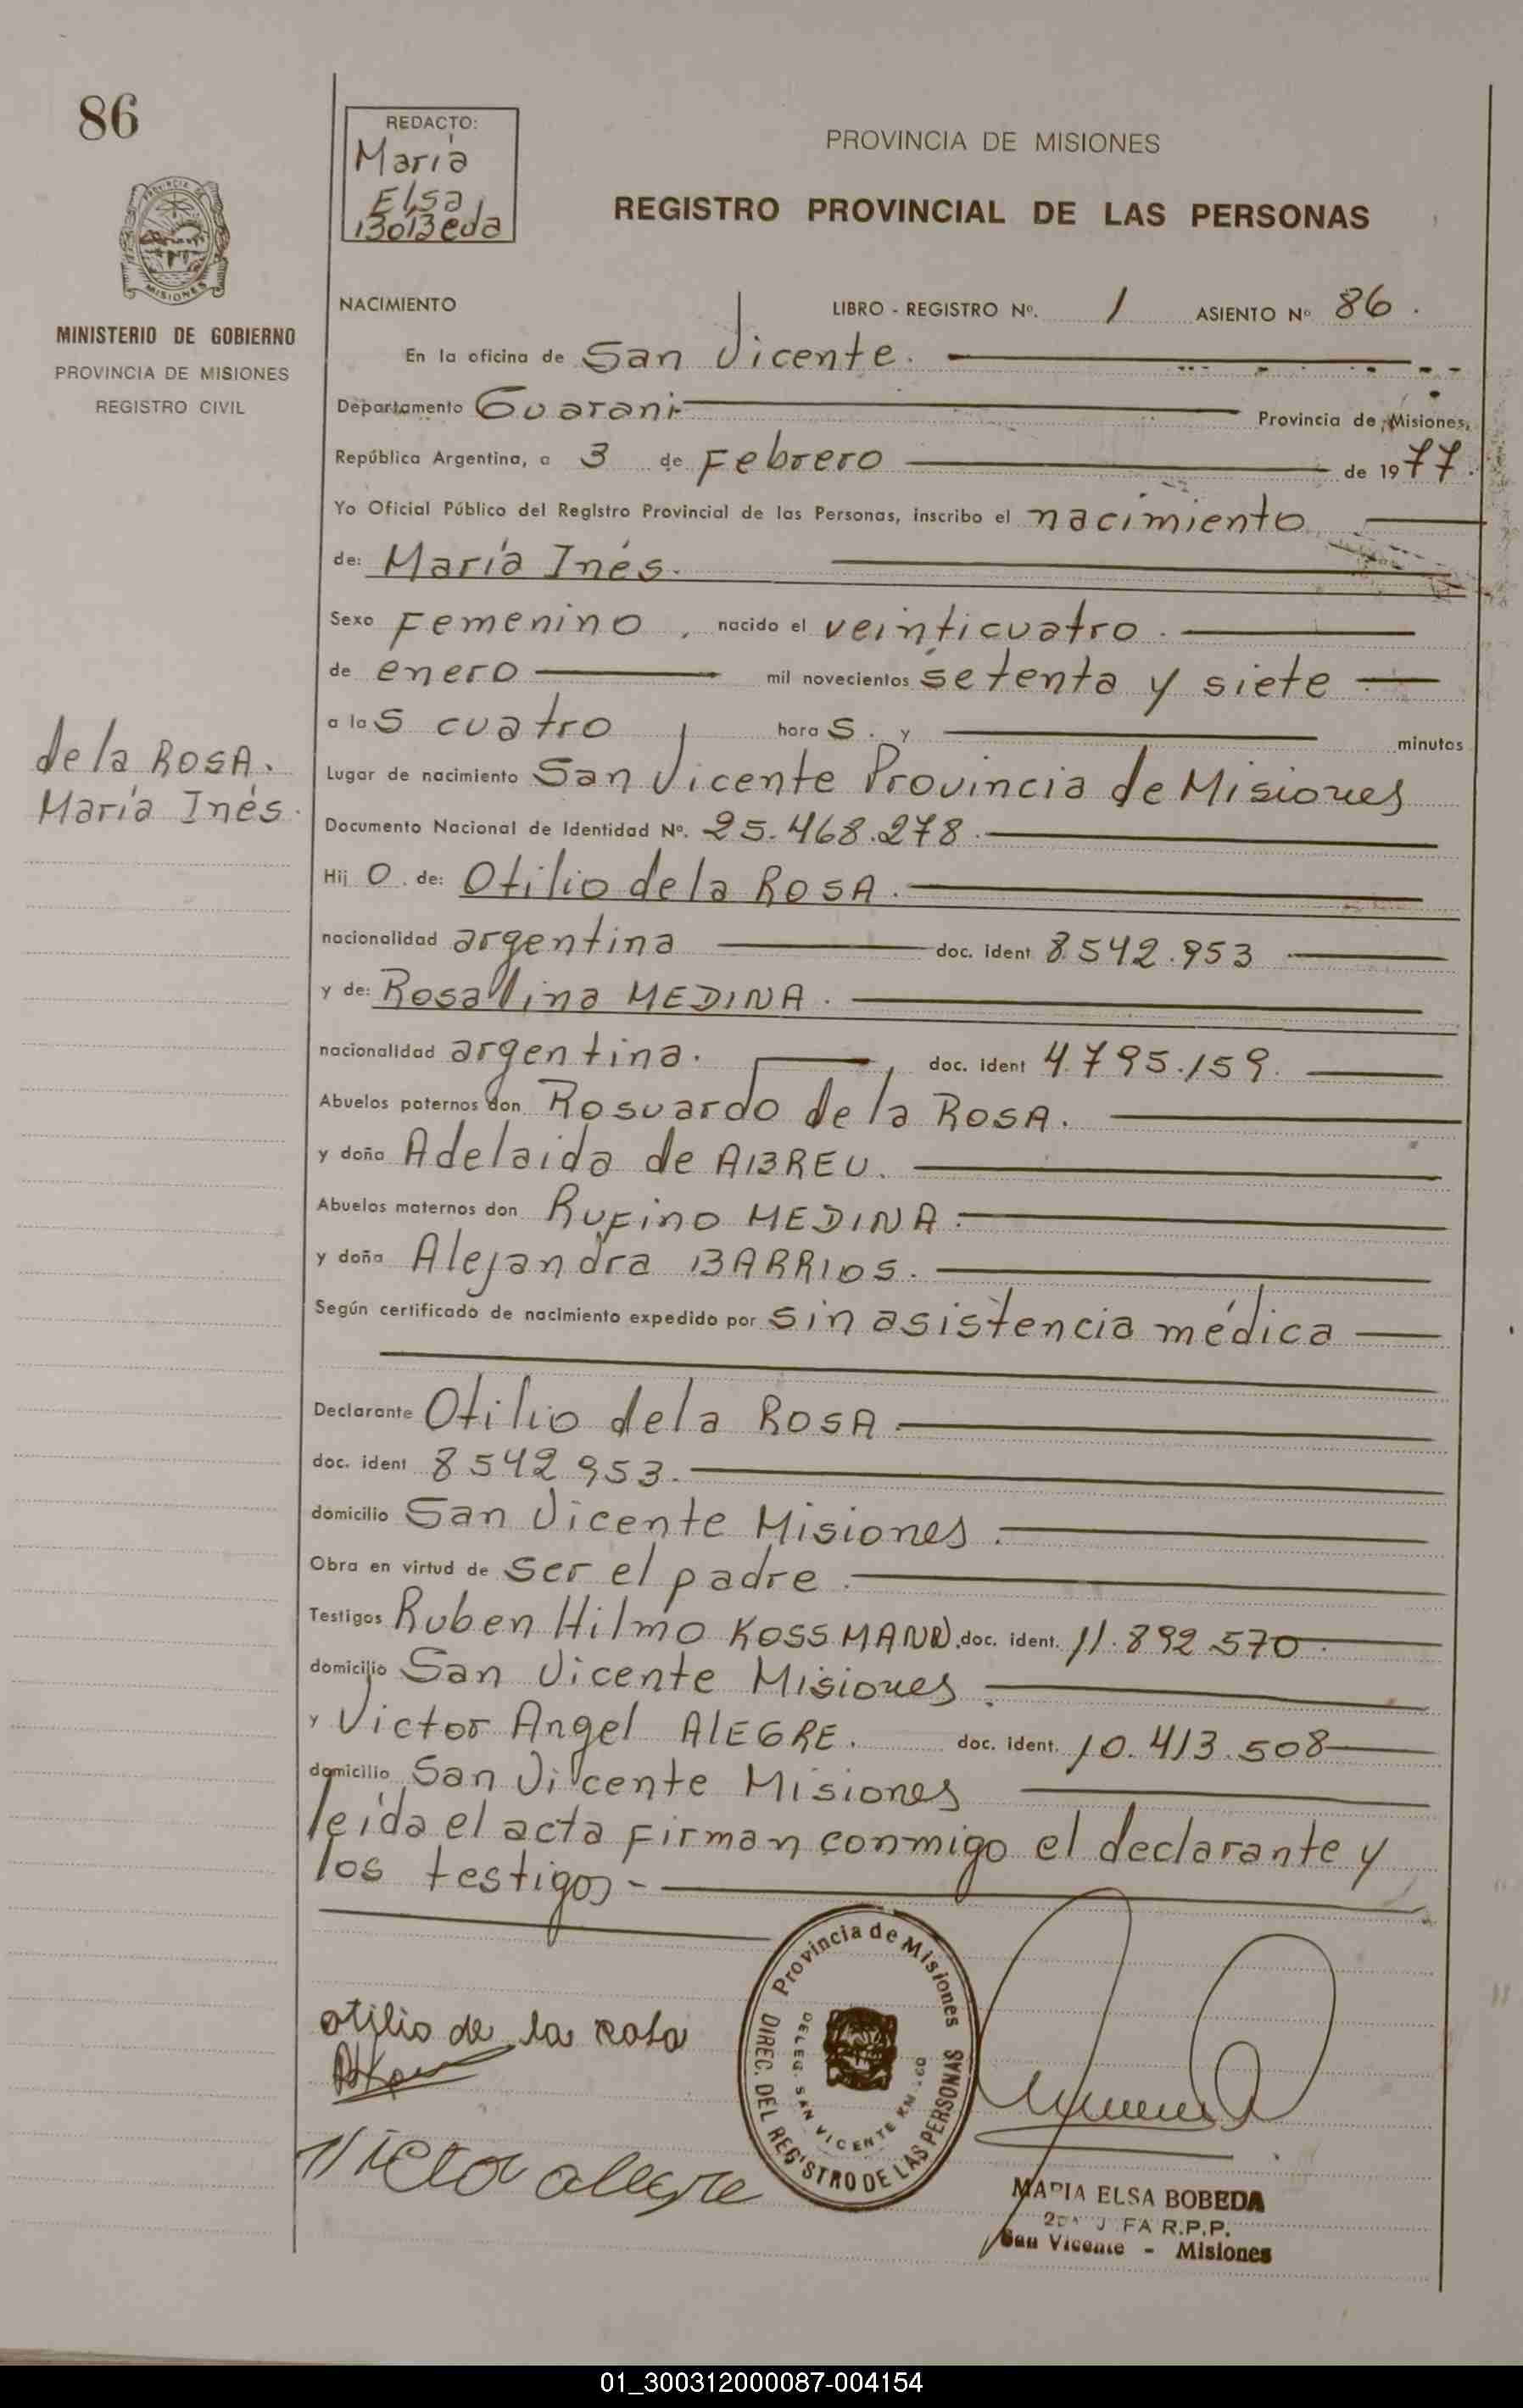 86
REDACTO:
María
Elsa
Bobeda
PROVINCIA DE MISIONES
REGISTRO PROVINCIAL DE LAS PERSONAS
MISIONES
MINISTERIO DE GOBIERNO
PROVINCIA DE MISIONES
REGISTRO CIVIL
NACIMIENTO LIBRO - REGISTRO Nº. 1 ASIENTO Nº 86.
En la oficina de San Vicente.
Departamento Guaraní Provincia de Misiones,
República Argentina, a 3 de Febrero de 1977.
Yo Oficial Público del Registro Provincial de las Personas, inscribo el nacimiento
de: María Inés.
Sexo Femenino, nacido el veinticuatro.
de enero mil novecientos setenta y siete
a las cuatro horas. y minutos
de la ROSA.
María Inés.
Lugar de nacimiento San Vicente Provincia de Misiones
Documento Nacional de Identidad Nº. 25.468.278.
Hijo. de: Otilio de la ROSA.
nacionalidad argentina doc. ident 8.542.953
y de: Rosalina MEDINA.
nacionalidad argentina. doc. ident 4.795.159.
Abuelos paternos don Rosuardo de la ROSA.
y doña Adelaida de ABREU.
Abuelos maternos don Rufino MEDINA.
y doña Alejandra BARRIOS.
Según certificado de nacimiento expedido por sin asistencia médica
Declarante Otilio de la ROSA.
doc. ident 8542953.
domicilio San Vicente Misiones.
Obra en virtud de ser el padre.
Testigos Ruben Hilmo KOSSMANN. doc. ident. 11.892.570.
domicilio San Vicente Misiones.
y Victor Angel ALEGRE. doc. ident. 10.413.508
domicilio San Vicente Misiones
leída el acta firman conmigo el declarante y
los testigos-
otilio de la rosa
Victor alegre
Provincia de Misiones
DIREC. DEL REGISTRO DE LAS PERSONAS
DELEG. SAN VICENTE KM.
MARIA ELSA BOBEDA
R.P.P.
San Vicente - Misiones
01_300312000087-004154